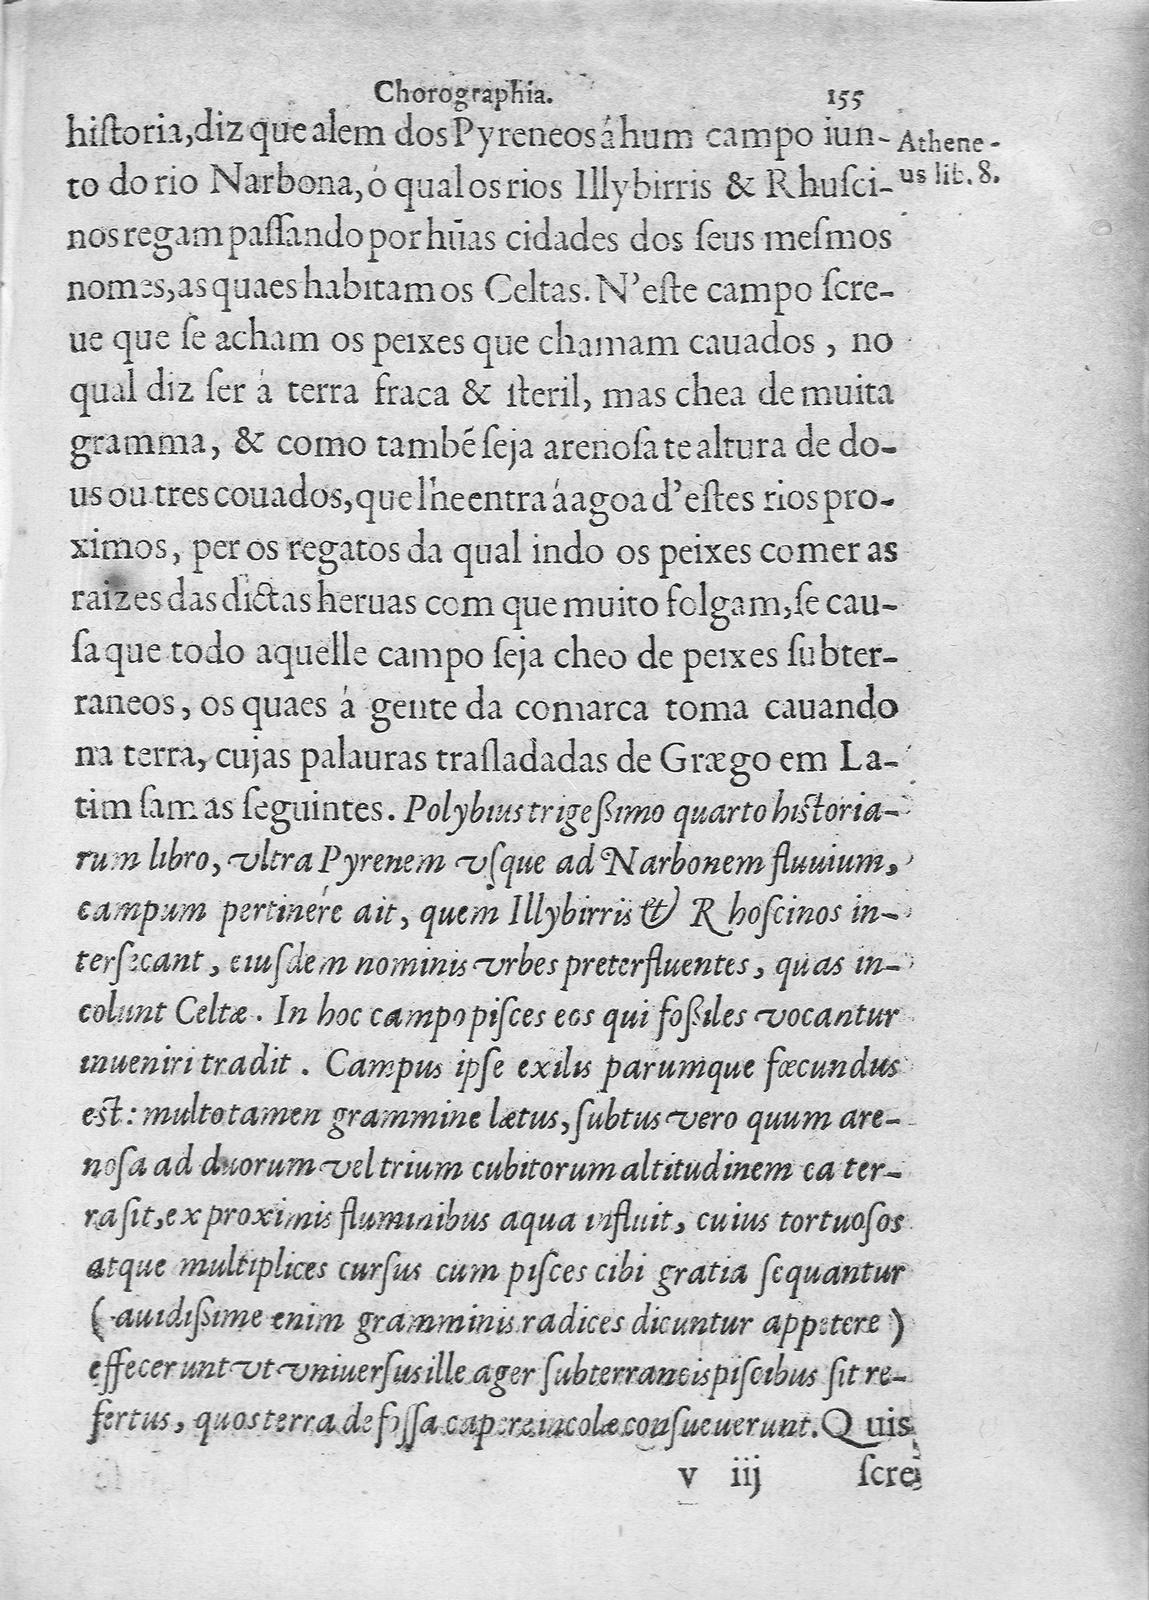 Chorographia. 155
hiſtoria, diz que alem dos Pyreneos á hum campo iun-
Athene-
to do rio Narbona, ó qual os rios Illybirris & Rhuſci-
us lib. 8.
nos regam paſſando por hũas cidades dos ſeus meſmos
nomes, as quaes habitam os Celtas. N'eſte campo ſcre-
ue que ſe acham os peixes que chamam cauados, no
qual diz ſer á terra fraca & ſteril, mas chea de muita
gramma, & como tambẽ ſeja arenoſa te altura de do-
us ou tres couados, que lhe entra á agoa d'eſtes rios pro-
ximos, per os regatos da qual indo os peixes comer as
raizes das dictas heruas com que muito folgam, ſe cau-
ſa que todo aquelle campo ſeja cheo de peixes ſubter-
raneos, os quaes á gente da comarca toma cauando
na terra, cujas palauras traſladadas de Grægo em La-
tim ſam as ſeguintes. Polybius trigeßimo quarto hiſtoria-
rum libro, vltra Pyrenem vſque ad Narbonem fluuium,
campum pertinére ait, quem Illybirris & Rhoſcinos in-
terſecant, eiuſdem nominis vrbes preterfluentes, quas in-
colunt Celtæ. In hoc campo piſces eos qui foßiles vocantur
inueniri tradit. Campus ipſe exilis parumque fœcundus
eſt: multo tamen grammine lætus, ſubtus vero quum are-
noſa ad duorum vel trium cubitorum altitudinem ea ter-
ra ſit, ex proximis fluminibus aqua influit, cuius tortuoſos
atque multiplices curſus cum piſces cibi gratia ſequantur
(auidißime enim gramminis radices dicuntur appetere)
effecerunt vt vniuerſus ille ager ſubterraneis piſcibus ſit re-
fertus, quos terra defoſſa capere incolæ conſueuerunt. Quis
v iij ſcre